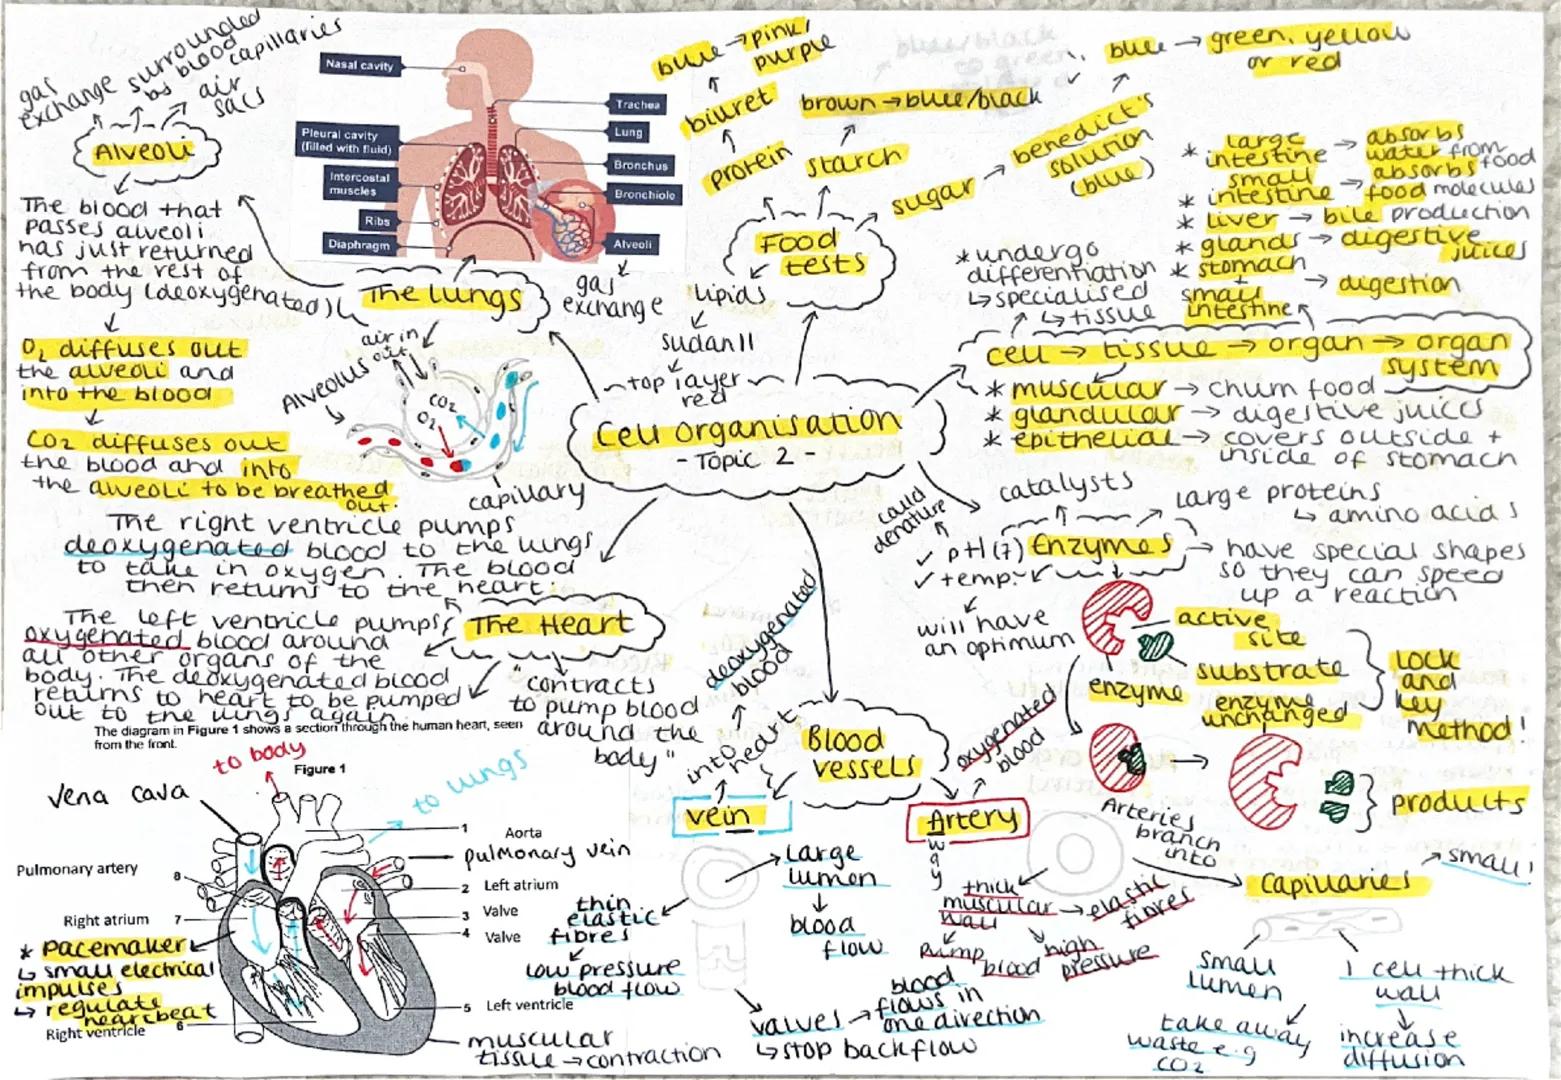 gas
exchange
surrounded
by blood
capillaries
air
sacs
Alveoli
The blood that
passes alveoli
has just returned
from the rest of
the body (deoxygenated)
O2 diffuses out
the alveoli and
into the blood
CO2 diffuses out
the blood and into
the alveoli to be breathed
out.
Nasal cavity
Pleural cavity
(filled with fluid)
Intercostal
muscles
Ribs
Diaphragm
Trachea
Lung
Bronchus
Bronchiole
Alveoli
gas
exchange
The lungs
air in
out
Alveolus
CO2
O2
capillary
blue → pink/
purple
biuret
protein
brown → blue/black
starch
blue → green, yellow
or red
benedict's
solution
(blue)
sugar
Food
tests
lipids
sudan II
top layer
red
Cell organisation
- Topic 2 -
* undergo
differentiation
↳ specialised
↳ tissue
* large
intestine → absorbs
water from
food
* small
intestine → absorbs
food molecules
* liver → bile production
* glands → digestive
juices
* stomach
small
intestine
→ digestion
cell → tissue → organ → organ
system
* muscular → churn food
* glandular → digestive juices
* epithelial → covers outside +
inside of stomach
catalysts
large proteins
↳ amino acids
called
denature
✓ pH (7)
✓ temp:
Enzymes
→ have special shapes
so they can speed
up a reaction
will have
an optimum
active
site
substrate
enzyme
enzyme
unchanged
lock
and
key
method!
products
The right ventricle pumps
deoxygenated blood to the lungs
to take in oxygen. The blood
then returns to the heart.
The left ventricle pumps
oxygenated blood around
all other organs of the
body. The deoxygenated blood
returns to heart to be pumped
out to the lungs again.
The Heart
"contracts
to pump blood
around the
body"
The diagram in Figure 1 shows a section through the human heart, seen
from the front.
Figure 1
to body
to lungs
vena cava
Pulmonary artery
8
Right atrium
7
* pacemaker
↳ small electrical
impulses
↳ regulate
heartbeat
Right ventricle
6
1
Aorta
pulmonary vein
2 Left atrium
3 Valve
4 Valve
5 Left ventricle
muscular
tissue → contraction
Blood
vessels
deoxygenated
blood
into
heart
vein
large
lumen
blood
flow
thin
elastic
fibres
low pressure
blood flow
valves → blood
flows in
one direction
↳ stop backflow
oxygenated
blood
Artery
w
a
y
thick
muscular
wall
→ elastic
fibres
pump
blood
high
pressure
Arteries
branch
into
capillaries
small!
small
lumen
take away
waste e.g
CO2
1 cell thick
wall
increase
diffusion